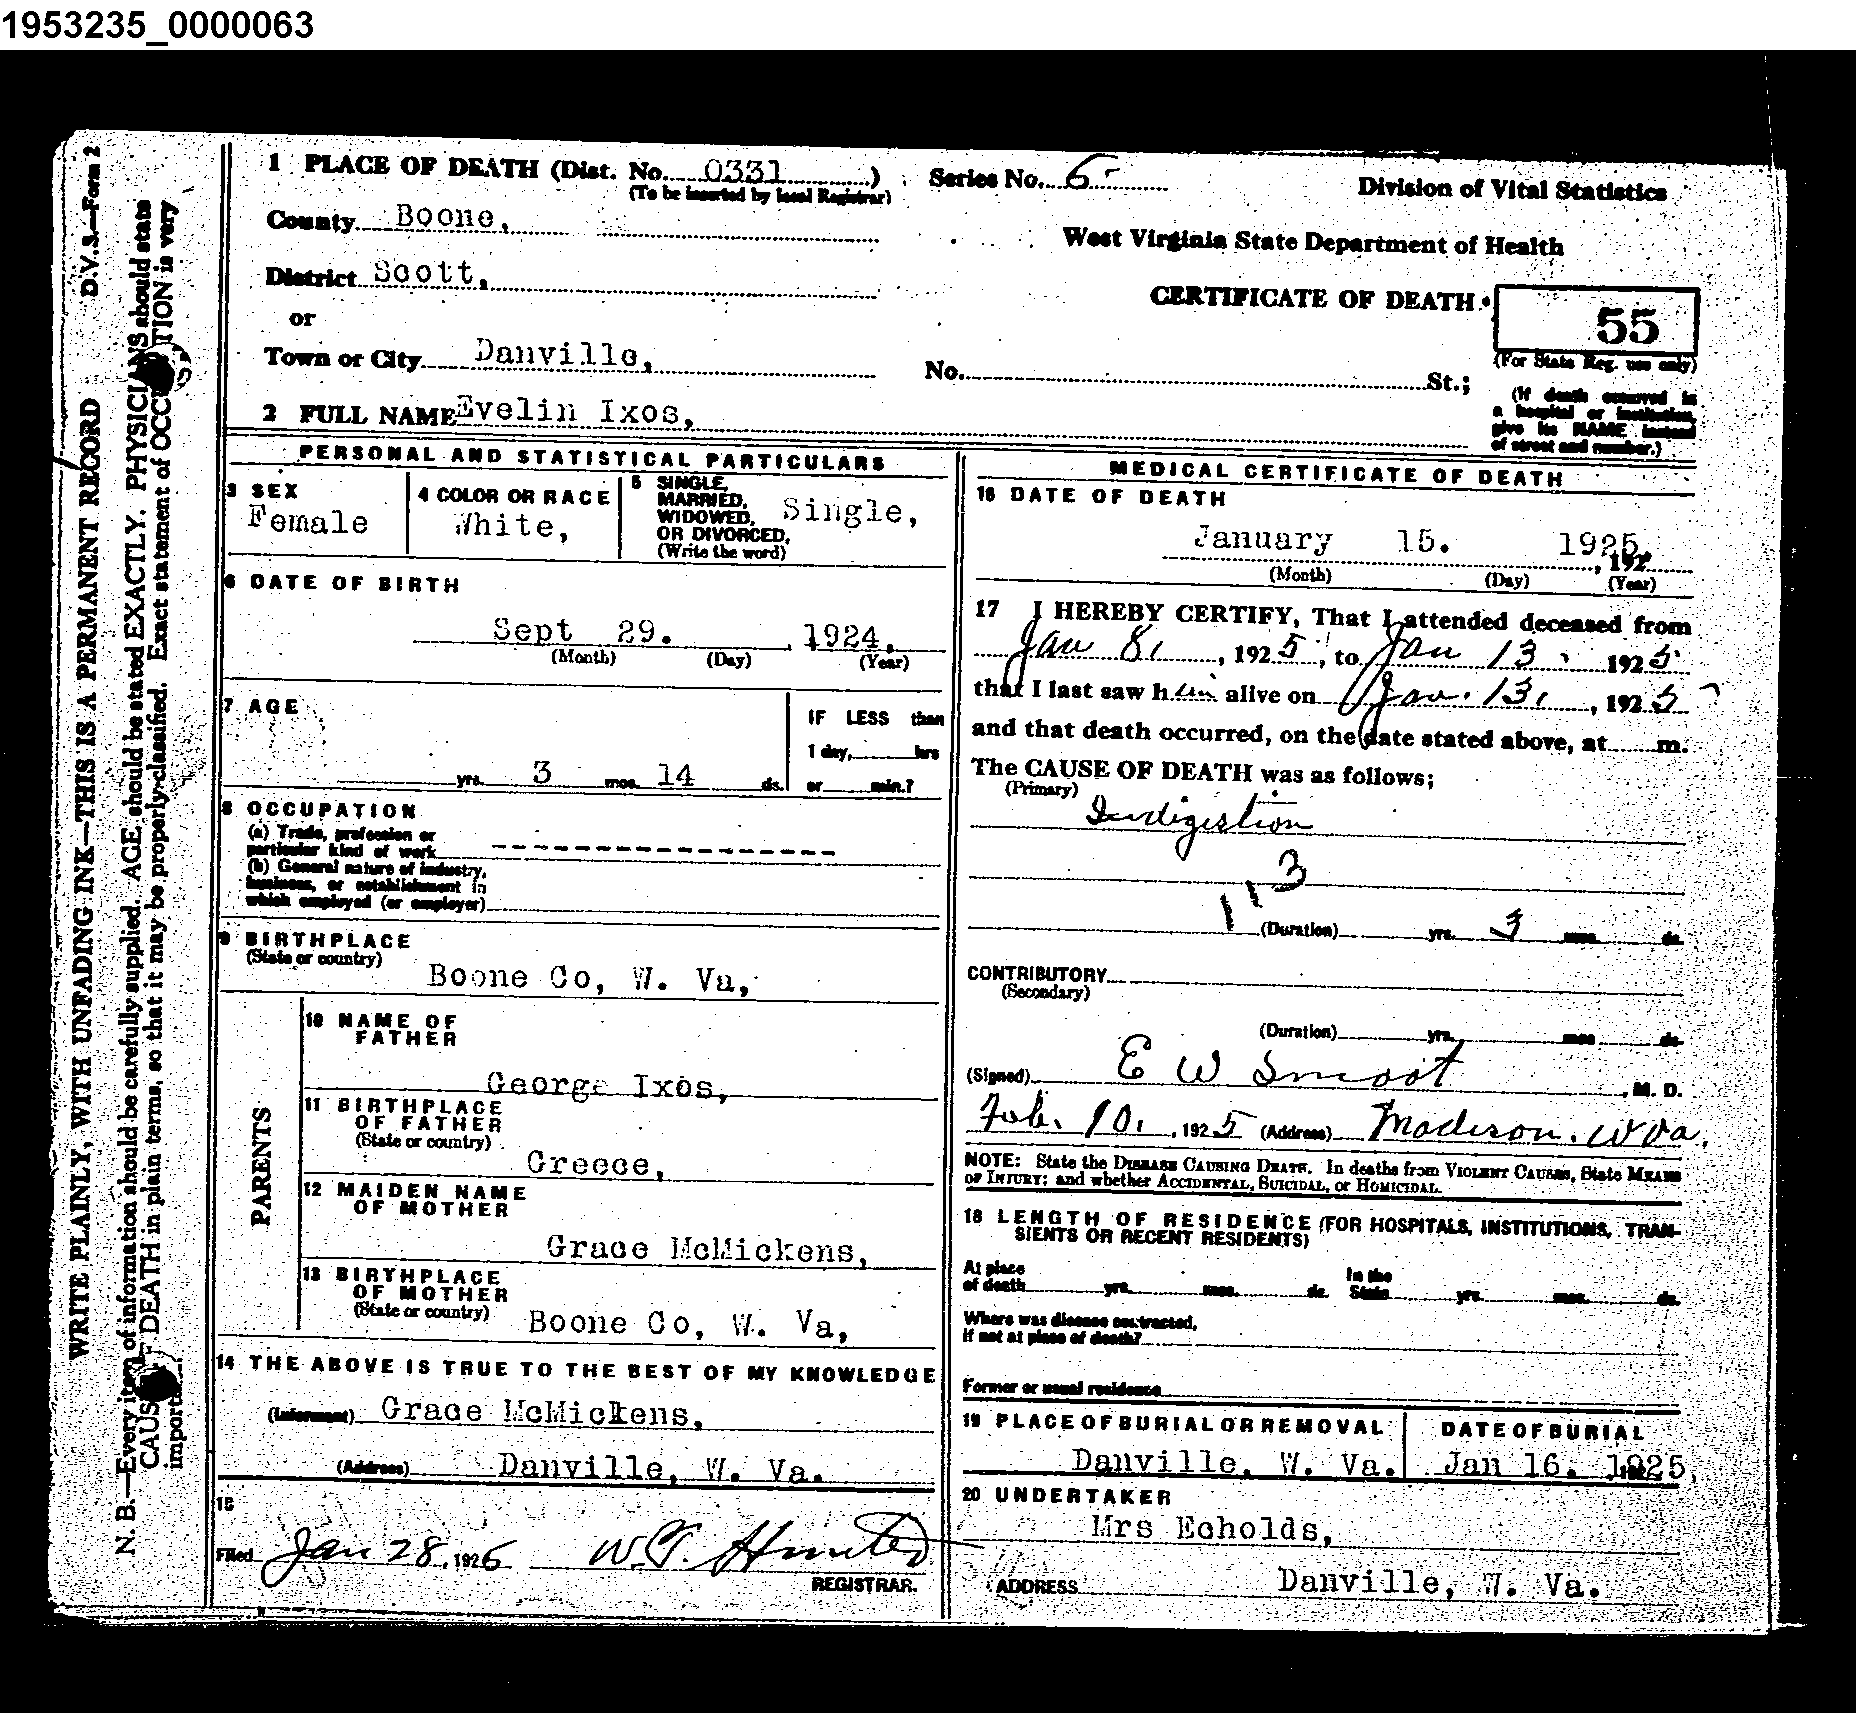 1953235_0000063
1 PLACE OF DEATH (Dist. No. 0331 ) Series No. 6- Division of Vital Statistics
(To be inserted by local Registrar)
County Boone, West Virginia State Department of Health
District Scott, CERTIFICATE OF DEATH
or 55
(For State Reg. use only)
Town or City Danville, No. St.;
(If death occurred in
a hospital or institution,
give its NAME instead
of street and number.)
2 FULL NAME Evelin Ixos,
PERSONAL AND STATISTICAL PARTICULARS
3 SEX
Female
4 COLOR OR RACE
White,
5 SINGLE,
MARRIED,
WIDOWED,
OR DIVORCED,
(Write the word)
Single,
6 DATE OF BIRTH
Sept 29. , 1924,
(Month) (Day) (Year)
7 AGE
yrs. 3 mos. 14 ds.
IF LESS than
1 day, hrs
or min.?
8 OCCUPATION
(a) Trade, profession or
particular kind of work - - - - - - - - - - - - - - - - - -
(b) General nature of industry,
business, or establishment in
which employed (or employer)
9 BIRTHPLACE
(State or country)
Boone Co, W. Va,
PARENTS
10 NAME OF
FATHER
George Ixos,
11 BIRTHPLACE
OF FATHER
(State or country)
Greece,
12 MAIDEN NAME
OF MOTHER
Grace McMickens,
13 BIRTHPLACE
OF MOTHER
(State or country)
Boone Co, W. Va,
14 THE ABOVE IS TRUE TO THE BEST OF MY KNOWLEDGE
(Informant) Grace McMickens,
(Address) Danville, W. Va.
15
Filed Jan 28, 1925 W.T. Hunter
REGISTRAR.
MEDICAL CERTIFICATE OF DEATH
16 DATE OF DEATH
January 15. 1925, , 192
(Month) (Day) (Year)
17 I HEREBY CERTIFY, That I attended deceased from
Jan 8, , 1925, to Jan 13, 1925
that I last saw him alive on Jan. 13, , 1925
and that death occurred, on the date stated above, at m.
The CAUSE OF DEATH was as follows;
(Primary)
Indigestion
113
(Duration) yrs. 3 mos. ds.
CONTRIBUTORY
(Secondary)
(Duration) yrs. mos. ds.
(Signed) E W Smoot , M. D.
Feb. 10. , 1925 (Address) Madison. W Va.
NOTE: State the DISEASE CAUSING DEATH. In deaths from VIOLENT CAUSES, State MEANS
OF INJURY; and whether ACCIDENTAL, SUICIDAL, or HOMICIDAL.
18 LENGTH OF RESIDENCE (FOR HOSPITALS, INSTITUTIONS, TRAN-
SIENTS OR RECENT RESIDENTS)
At place
of death yrs. mos. ds.
In the
State yrs. mos. ds.
Where was disease contracted,
if not at place of death?
Former or usual residence
19 PLACE OF BURIAL OR REMOVAL
Danville, W. Va.
DATE OF BURIAL
Jan 16. 1925,
20 UNDERTAKER
Mrs Echolds,
ADDRESS Danville, W. Va.
D.V.S.—Form 2
WRITE PLAINLY, WITH UNFADING INK—THIS IS A PERMANENT RECORD
N. B.—Every item of information should be carefully supplied. AGE should be stated EXACTLY. PHYSICIANS should state
CAUS DEATH in plain terms, so that it may be properly classified. Exact statement of OCCU TION is very
import